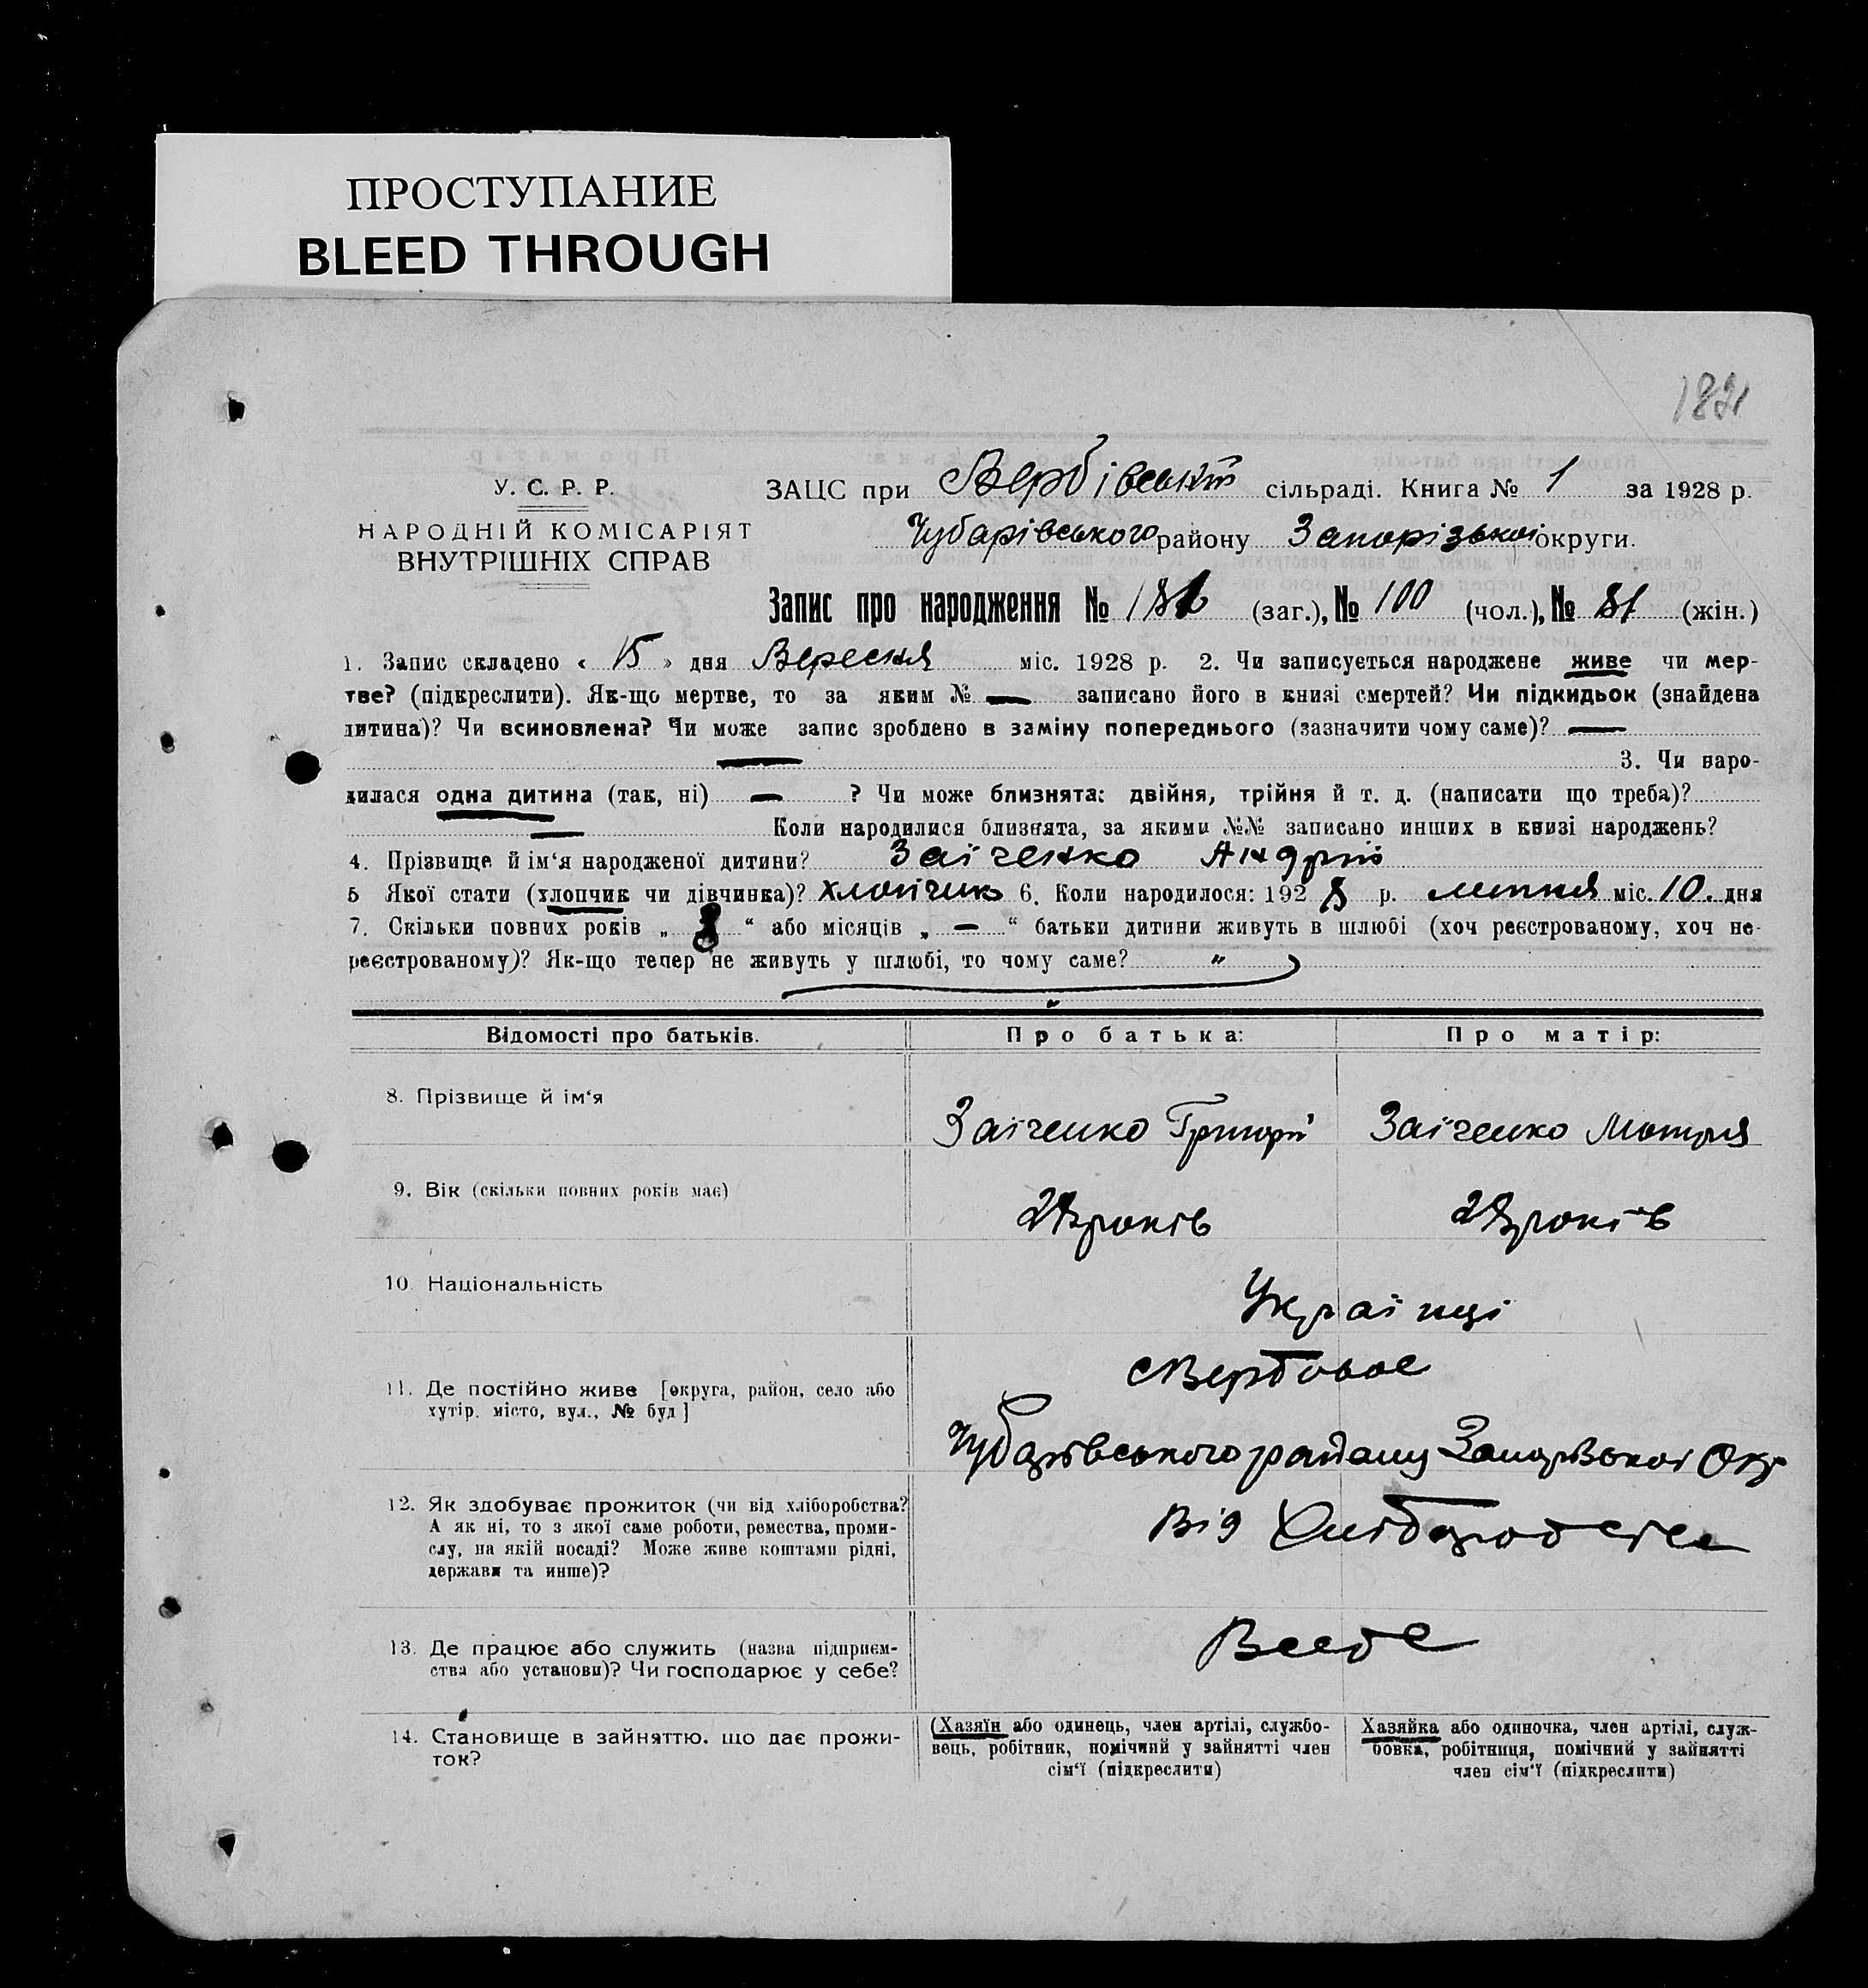 ПРОСТУПАНИЕ
BLEED THROUGH
У. С. Р. Р.
НАРОДНІЙ КОМІСАРІЯТ
ВНУТРІШНІХ СПРАВ
ЗАЦС при Вербівській сільраді. Книга № 1 за 1928 р.
Чубарівського району Запорізької округи.
Запис про народження № (заг.), № 100 (чол.), № 81 (жін.)
1. Запис складено « 15 » дня Вересня міс. 1928 р. 2. Чи записується народжене живе чи мер-
тве? (підкреслити). Як-що мертве, то за яким № — записано його в книзі смертей? Чи підкидьок (знайдена
дитина)? Чи всиновлена? Чи може запис зроблено в заміну попереднього (зазначити чому саме)? —
— 3. Чи наро-
дилася одна дитина (так, ні) — ? Чи може близнята: двійня, трійня й т. д. (написати що треба)?
— Коли народилися близнята, за якими №№ записано инших в книзі народжень?
4. Прізвище й ім‘я народженої дитини? Заіченко Андрій
5 Якої стати (хлопчик чи дівчинка)? хлопчик 6. Коли народилося: 1928 р. липня міс. 10. дня
7. Скільки повних років „ “ або місяців „ — “ батьки дитини живуть в шлюбі (хоч реєстрованому, хоч не-
реєстрованому)? Як-що тепер не живуть у шлюбі, то чому саме? "
Відомості про батьків. Про батька: Про матір:
8. Прізвище й ім‘я
Заіченко Григорій Заіченко Мотря
9. Вік (скільки повних років має)
років років
10. Національність
Українці
с Вербовое
11. Де постійно живе [округа, район, село або
хутір, місто, вул., № буд]
Чубарівського району Запорізькоі Окр
12. Як здобуває прожиток (чи від хліборобства?
А як ні, то з якої саме роботи, ремества, проми-
слу, на якій посаді? Може живе коштами рідні,
держави та инше)?
Від Хліборобства
13. Де працює або служить (назва підприєм-
ства або установи)? Чи господарює у себе?
В себе
14. Становище в зайняттю, що дає прожи-
ток?
(Хазяїн або одинець, член артілі, службо-
вець, робітник, помічний у зайнятті член
сім‘ї (підкреслити)
Хазяйка або одиночка, член артілі, служ-
бовка, робітниця, помічний у зайнятті
член сім‘ї (підкреслити)